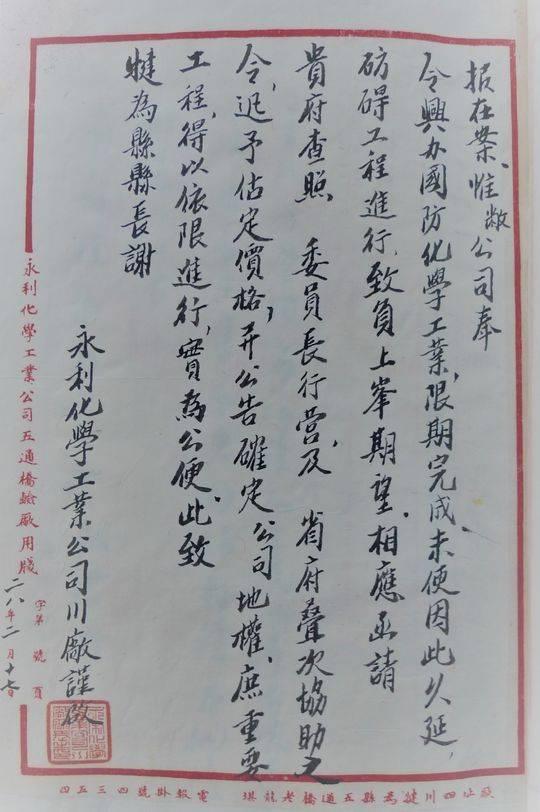 报在案、惟敝公司奉
令興办國防化學工業、限期完成、未便因此久延，
妨碍工程進行，致負上峯期望．相應函請
貴府查照　委員長行营，及　省府叠次協助之
令，迅予估定價格，并公告確定公司地權，庶重要
工程，得以依限進行，實為公便．此致
犍為縣縣長謝
永利化學工業公司川廠謹啟
永利化學工業公司五通橋鹼廠用牋
字第　號　頁
二八年二月十七日
廠址四川犍為縣五通橋老龍垻
電報掛號四三五四